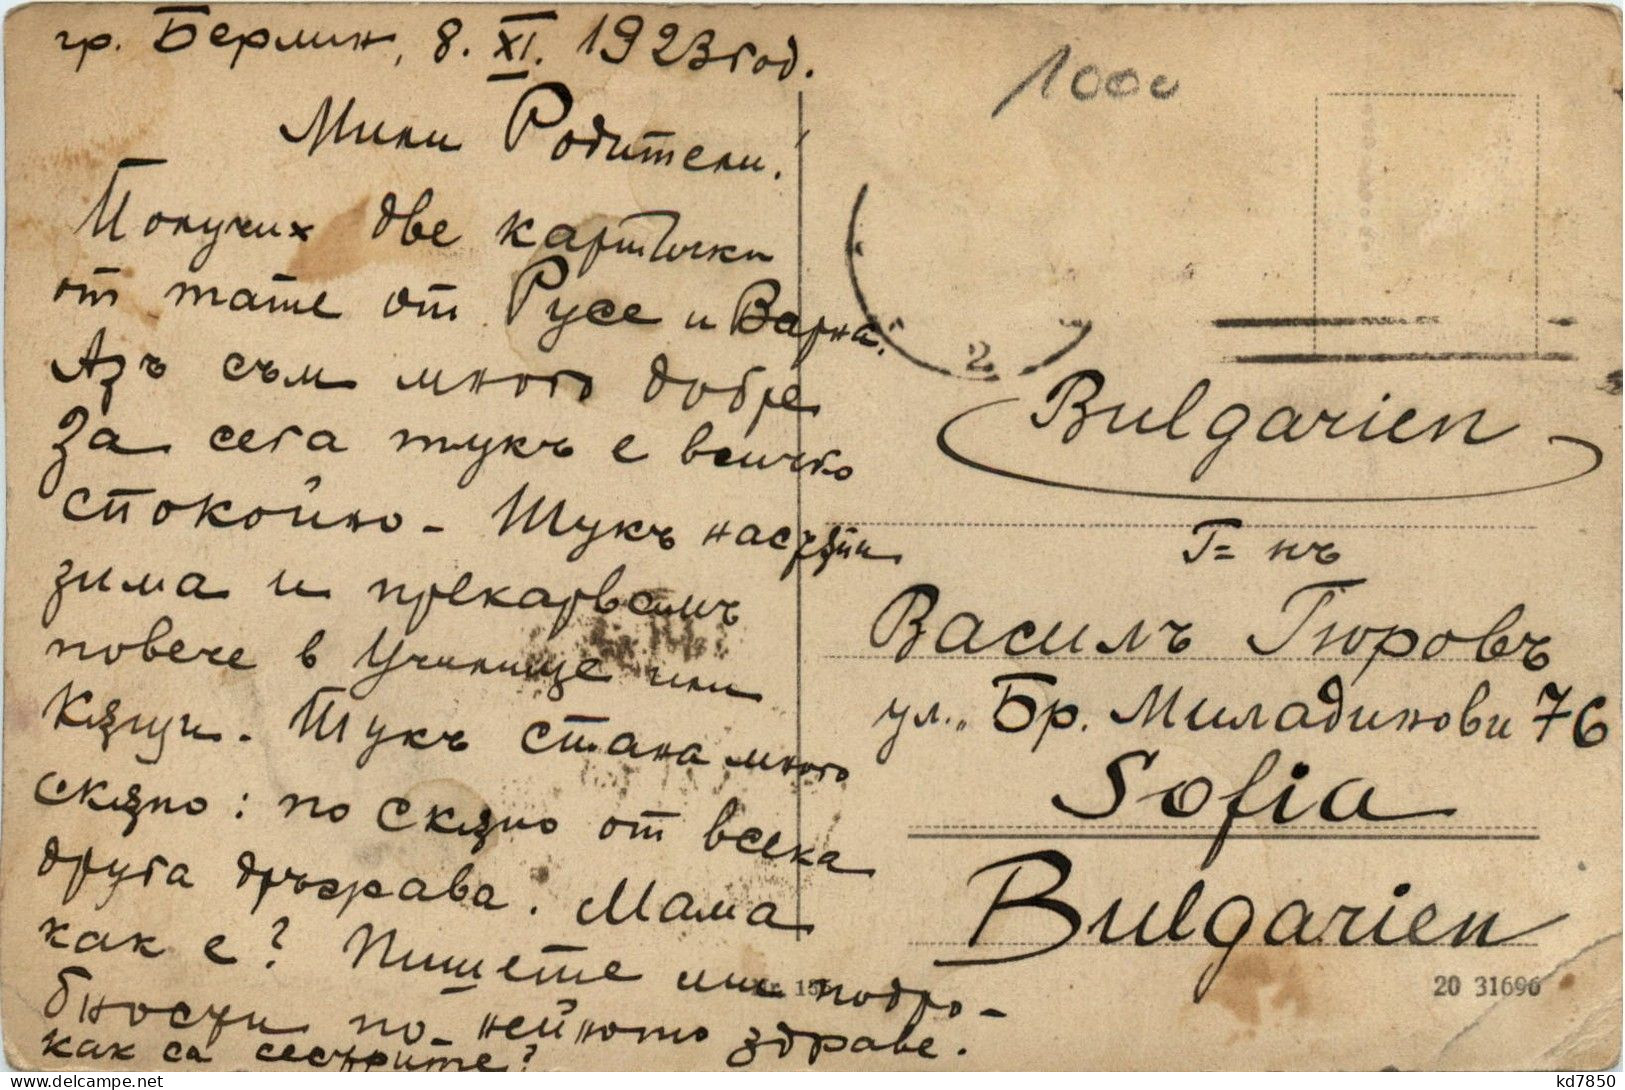 гр. Берлин, 8. XI. 1923 год.
Мили Родители.
Получих две картички
от тате от Русе и Варна.
Азъ съм много добре
За сега тукъ е всичко
спокойно - Тукъ настѫпи
зима и прекарвамъ
повече в училище или
Кѫщи. Тукъ стана много
скѫпо: по скѫпо от всека
друга държава. Мама
как е? Пишете ми подро-
бности по нейното здраве.
как са сестрите?
1000
2.
Bulgarien
Г= нъ
Василъ Гюровъ
ул. „Бр. Миладинови 76
Sofia
Bulgarien
20 31696
kd7850